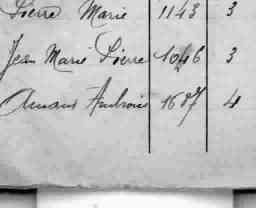 Pierre Marie 1143 3
Jean Marie Pierre 1046 3
Amand Ambroise 1687 4